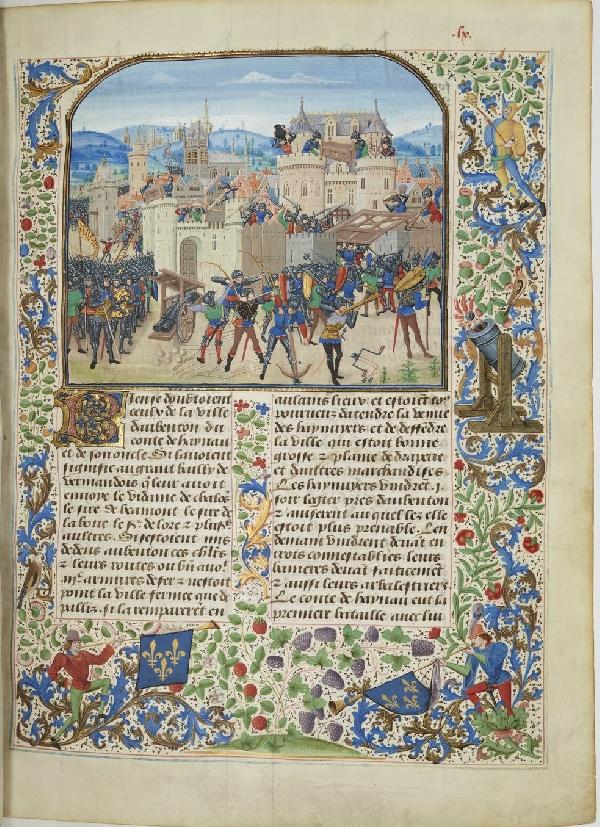 lx.
Bien se doubtoient
ceulx de la ville
daubenton du
conte de haynau
et de son oncle. Si lauoient
signifie au grant bailly de
vermandois qui leur auoit
enuoye le vidame de chalos
le sire de beaumont le sire de
la boue le sr. de lore et plusrs
aultres. Si sestoient mis
dedens aubenton ces chlrs
et leurs routes ou bn auoit
armures de fer et nestoit
point la ville fermee que de
palliz. si la remparerent en
aulcuns lieux et estoient
pourueuz dattendre la venue
des haynuyers et de deffendre
la ville qui estoit bonne
grosse et plaine de draperie
et dautres marchandises.
Les haynuyers vindrent.j.
soir logier pres daubenton
et auiserent au quel lez elle
estoit plus prenable. Len
demain vindrent deuant en
trois connestablies leurs
banieres deuant faiticement
et aussi leurs arbalestriers
Le conte de haynau eut la
premier bataille auec lui